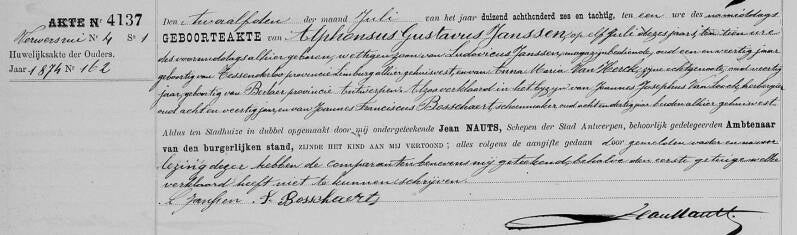 AKTE No 4137
Verwersrui No 4 S 1
Huwelijksakte der Ouders.
Jaar 1874 No 162
Den twaalfden der maand Juli van het jaar duizend achthonderd zes en tachtig, ten een ure des namiddags
GEBOORTEAKTE van Alphonsus Gustavus Janssen, op elf Juli dezes jaars, ten tien ure
des voormiddags alhier geboren, wettigen zoon van Ludovicus Janssen, magazynbediende, oud een en veertig jaar
geboortig van Tessenderloo provincie Limburg alhier gehuisvest en van Anna Maria Van Herck, zyne echtgenoote, oud veertig
jaar, geboortig van Berlaer provincie Antwerpen. Alzoo verklaard in het byzyn van Joannes Josephus herbergier
oud acht en veertig jaar, en van Joannes Franciscus Bosschaert, schoenmaker oud acht en dertig jaar beiden alhier gehuisvest.
Aldus ten Stadhuize in dubbel opgemaakt door mij ondergeteekende Jean NAUTS, Schepen der Stad Antwerpen, behoorlijk gedelegeerden Ambtenaar
van den burgerlijken stand, ZIJNDE HET KIND AAN MIJ VERTOOND; alles volgens de aangifte gedaan door gemelden vader en na voor
lezing dezer hebben de comparanten benevens mij geteekend, behalve den eerste getuige welke
verklaard heeft niet te kunnen schrijven.
L Janssen F Bosschaerts
Jean Nauts